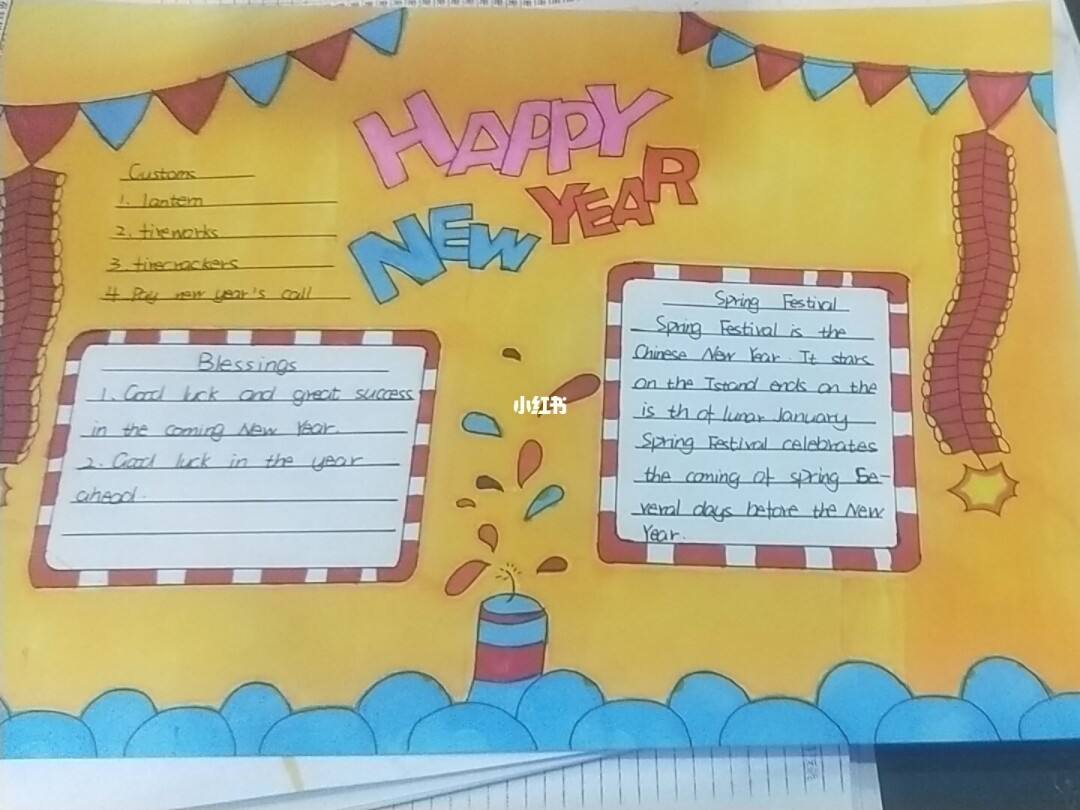 HAPPY
NEW YEAR
Customs
1. lantern
2. fireworks
3 firecrackers
4 Pay new year's call
Blessings
1. Good luck and great success
in the coming New Year.
2. Good luck in the year
ahead.
Spring Festival
Spring Festival is the
Chinese New Year. It stars
on the Istand ends on the
is th of lunar January
Spring Festival celebrates
the coming of spring Se-
veral days before the New
Year.
小红书